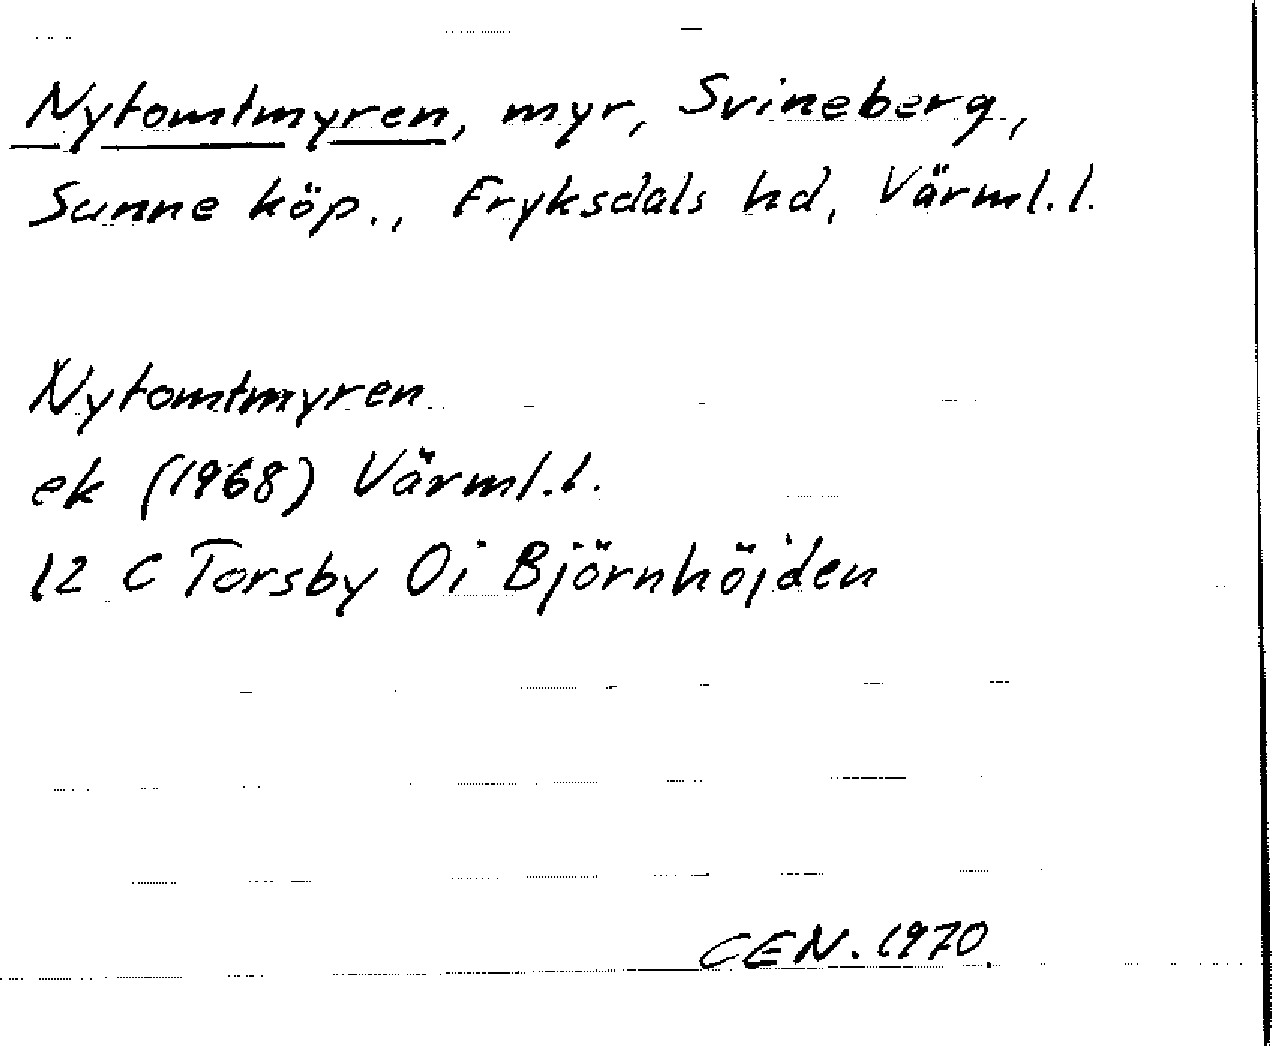 Nytomtmyren, myr, Svineberg,
Sunne köp., Fryksdals hd, Värml.l.
Nytomtmyren
ek (1968) Värml.l.
12 C Torsby 0i Björnhöjden
CEN. 1970.